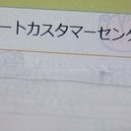 ートカスタマーセンタ